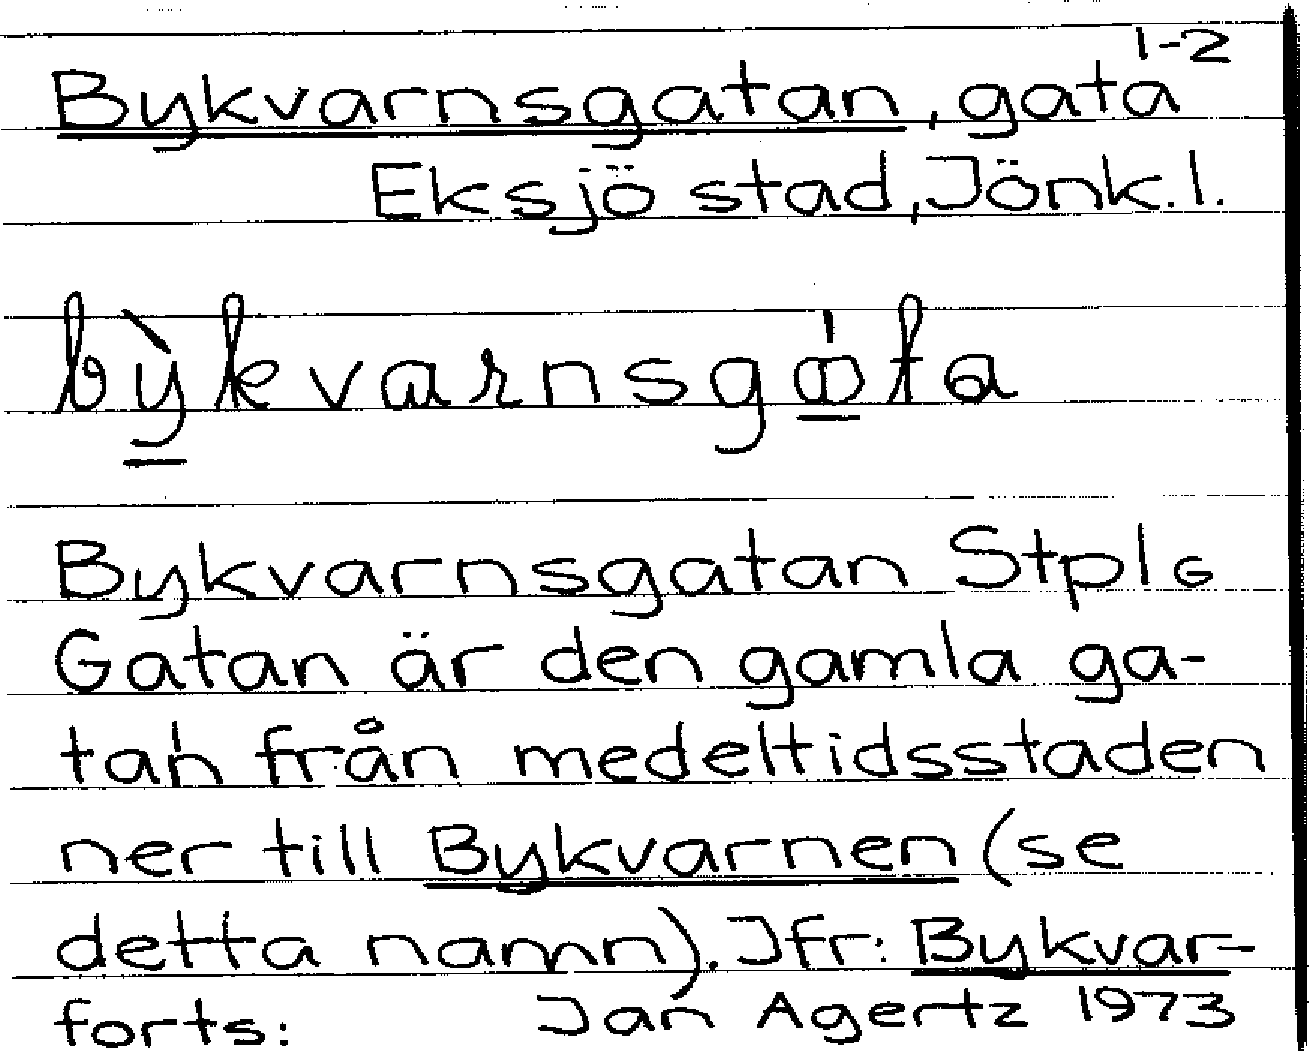 1-2
Bykvarnsgatan, gata
Eksjö stad, Jönk.l.
bỳkvarnsgata
Bykvarnsgatan Stpl.
Gatan är den gamla ga-
tan från medeltidsstaden
ner till Bykvarnen (se
detta namn). Jfr: Bykvar-
forts: Jan Agertz 1973